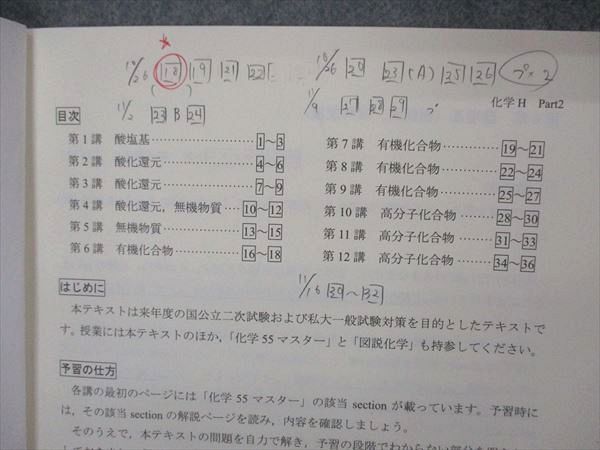 10/26 18 19 21 22
10/26 20 23 (A) 25 26 プ×2
11/2 23 B 24
11/9 27 28 29
化学H Part2
目次
第1講 酸塩基…………………………1～3
第2講 酸化還元………………………4～6
第3講 酸化還元………………………7～9
第4講 酸化還元，無機物質……10～12
第5講 無機物質……………………13～15
第6講 有機化合物…………………16～18
第7講 有機化合物……………19～21
第8講 有機化合物……………22～24
第9講 有機化合物……………25～27
第10講 高分子化合物…………28～30
第11講 高分子化合物…………31～33
第12講 高分子化合物…………34～36
11/16 30～32
はじめに
本テキストは来年度の国公立二次試験および私大一般試験対策を目的としたテキストで
す。授業には本テキストのほか，「化学55マスター」と「図説化学」も持参してください。
予習の仕方
各講の最初のページには「化学55マスター」の該当sectionが載っています。予習時に
は，その該当sectionの解説ページを読み，内容を確認しましょう。
そのうえで，本テキストの問題を自力で解き，予習の段階でわからない部分を